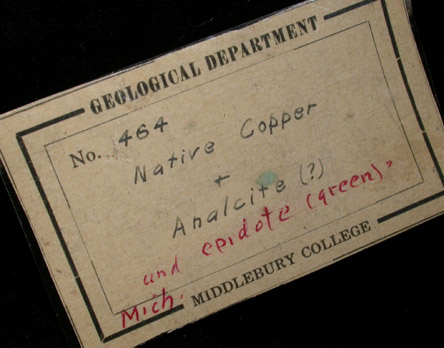 GEOLOGICAL DEPARTMENT
No. 464
Native Copper
+
Analcite (?)
and epidote (green).
Mich.
MIDDLEBURY COLLEGE